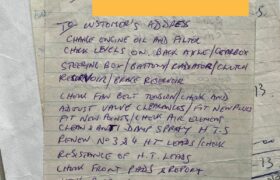 TO CUSTOMER'S ADDRESS
CHANGE ENGINE OIL AND FILTER
CHECK LEVELS ON. BACK AXLE/GEARBOX
STEERING BOX/BATTERY/RADIATOR/CLUTCH
RESERVOIR/BRAKE RESERVOIR
CHECK FAN BELT TENSION/CHECK AND
ADJUST VALVE CLEARANCES/FIT NEW PLUGS
FIT NEW POINTS/CHECK AIR ELEMENT
CLEAN & ANTI DAMP SPRAY H.T.S
RENEW No 3 & 4 HT LEADS/CHECK
RESISTANCE OF H.T. LEADS
CHECK FRONT PADS & REPORT